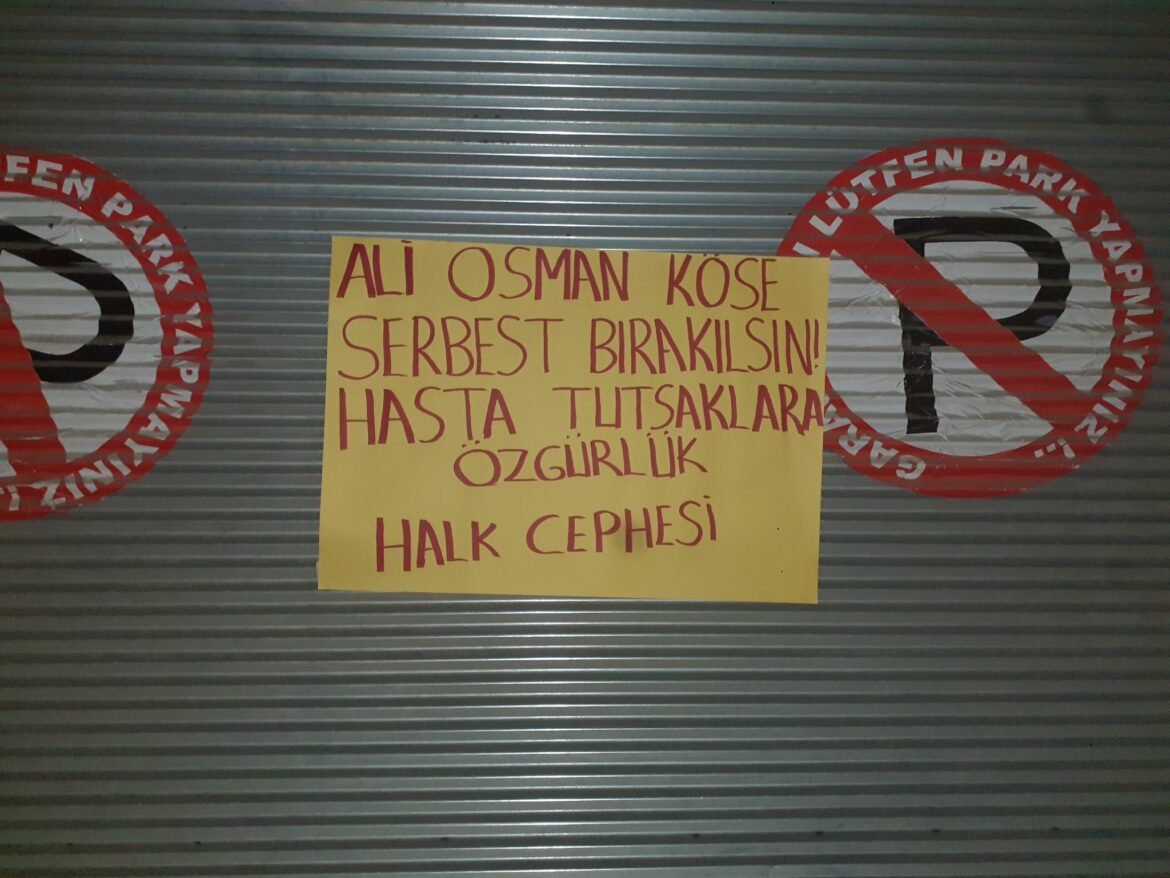 ALİ OSMAN KÖSE
SERBEST BIRAKILSIN!
HASTA TUTSAKLARA
ÖZGÜRLÜK
HALK CEPHESİ
PARK YAPMAYINIZ !..
P
LÜTFEN PARK YAPMAYINIZ !..
P